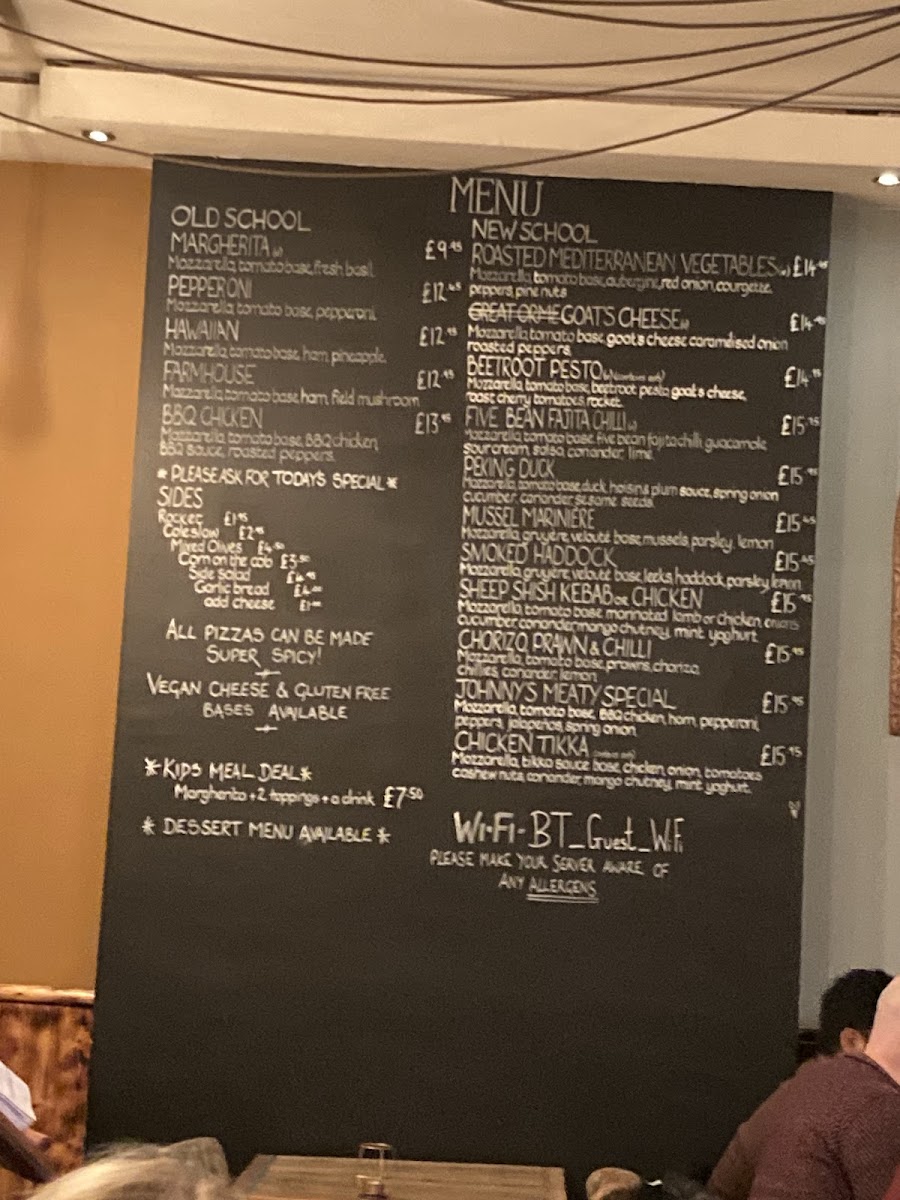 MENU
OLD SCHOOL
MARGHERITA (v) £9.45
Mozzarella, tomato base, fresh basil.
PEPPERONI £12.45
Mozzarella, tomato base, pepperoni.
HAWAIIAN £12.45
Mozzarella, tomato base, ham, pineapple.
FARMHOUSE £12.45
Mozzarella, tomato base, ham, field mushroom
BBQ CHICKEN £13.45
Mozzarella, tomato base, BBQ chicken,
BBQ sauce, roasted peppers.
* PLEASE ASK FOR TODAY'S SPECIAL *
SIDES
Rocket £1.95
Coleslaw £2.95
Mixed Olives £4.50
Corn on the cob £3.50
Side salad
Garlic bread
add cheese
ALL PIZZAS CAN BE MADE
SUPER SPICY!
VEGAN CHEESE & GLUTEN FREE
BASES AVAILABLE
* KIDS MEAL DEAL *
Margherita + 2 toppings + a drink £7.50
* DESSERT MENU AVAILABLE *
NEW SCHOOL
ROASTED MEDITERRANEAN VEGETABLES (v) £14.45
Mozzarella, tomato base, aubergine, red onion, courgette,
peppers, pine nuts
GREAT ORME GOAT'S CHEESE (v) £14.45
Mozzarella, tomato base, goat's cheese caramelised onion
roasted peppers.
BEETROOT PESTO £14.95
Mozzarella, tomato base, beetroot pesto, goat's cheese,
roast cherry tomatoes, rocket.
FIVE BEAN FAJITA CHILLI (v) £15.45
Mozzarella, tomato base, five bean fajita chilli, guacamole,
sour cream, salsa, coriander, lime.
PEKING DUCK £15.45
Mozzarella, tomato base, duck, hoisin & plum sauce, spring onion
cucumber, coriander, sesame seeds.
MUSSEL MARINIÈRE £15.45
Mozzarella, gruyère, velouté base, mussels, parsley, lemon
SMOKED HADDOCK £15.45
Mozzarella, gruyère, velouté base, leeks, haddock, parsley, lemon
SHEEP SHISH KEBAB OR CHICKEN £15.95
Mozzarella, tomato base, marinated lamb or chicken, onions
cucumber, coriander, mango chutney, mint yoghurt
CHORIZO, PRAWN & CHILLI £15.95
Mozzarella, tomato base, prawns, chorizo,
chillies, coriander, lemon
JOHNNY'S MEATY SPECIAL £15.95
Mozzarella, tomato base, BBQ chicken, ham, pepperoni,
peppers, jalapeños, spring onion
CHICKEN TIKKA £15.95
Mozzarella, tikka sauce base, chicken, onion, tomatoes
cashew nuts, coriander, mango chutney, mint yoghurt.
Wi-Fi - BT_Guest_WiFi
PLEASE MAKE YOUR SERVER AWARE OF
ANY ALLERGENS